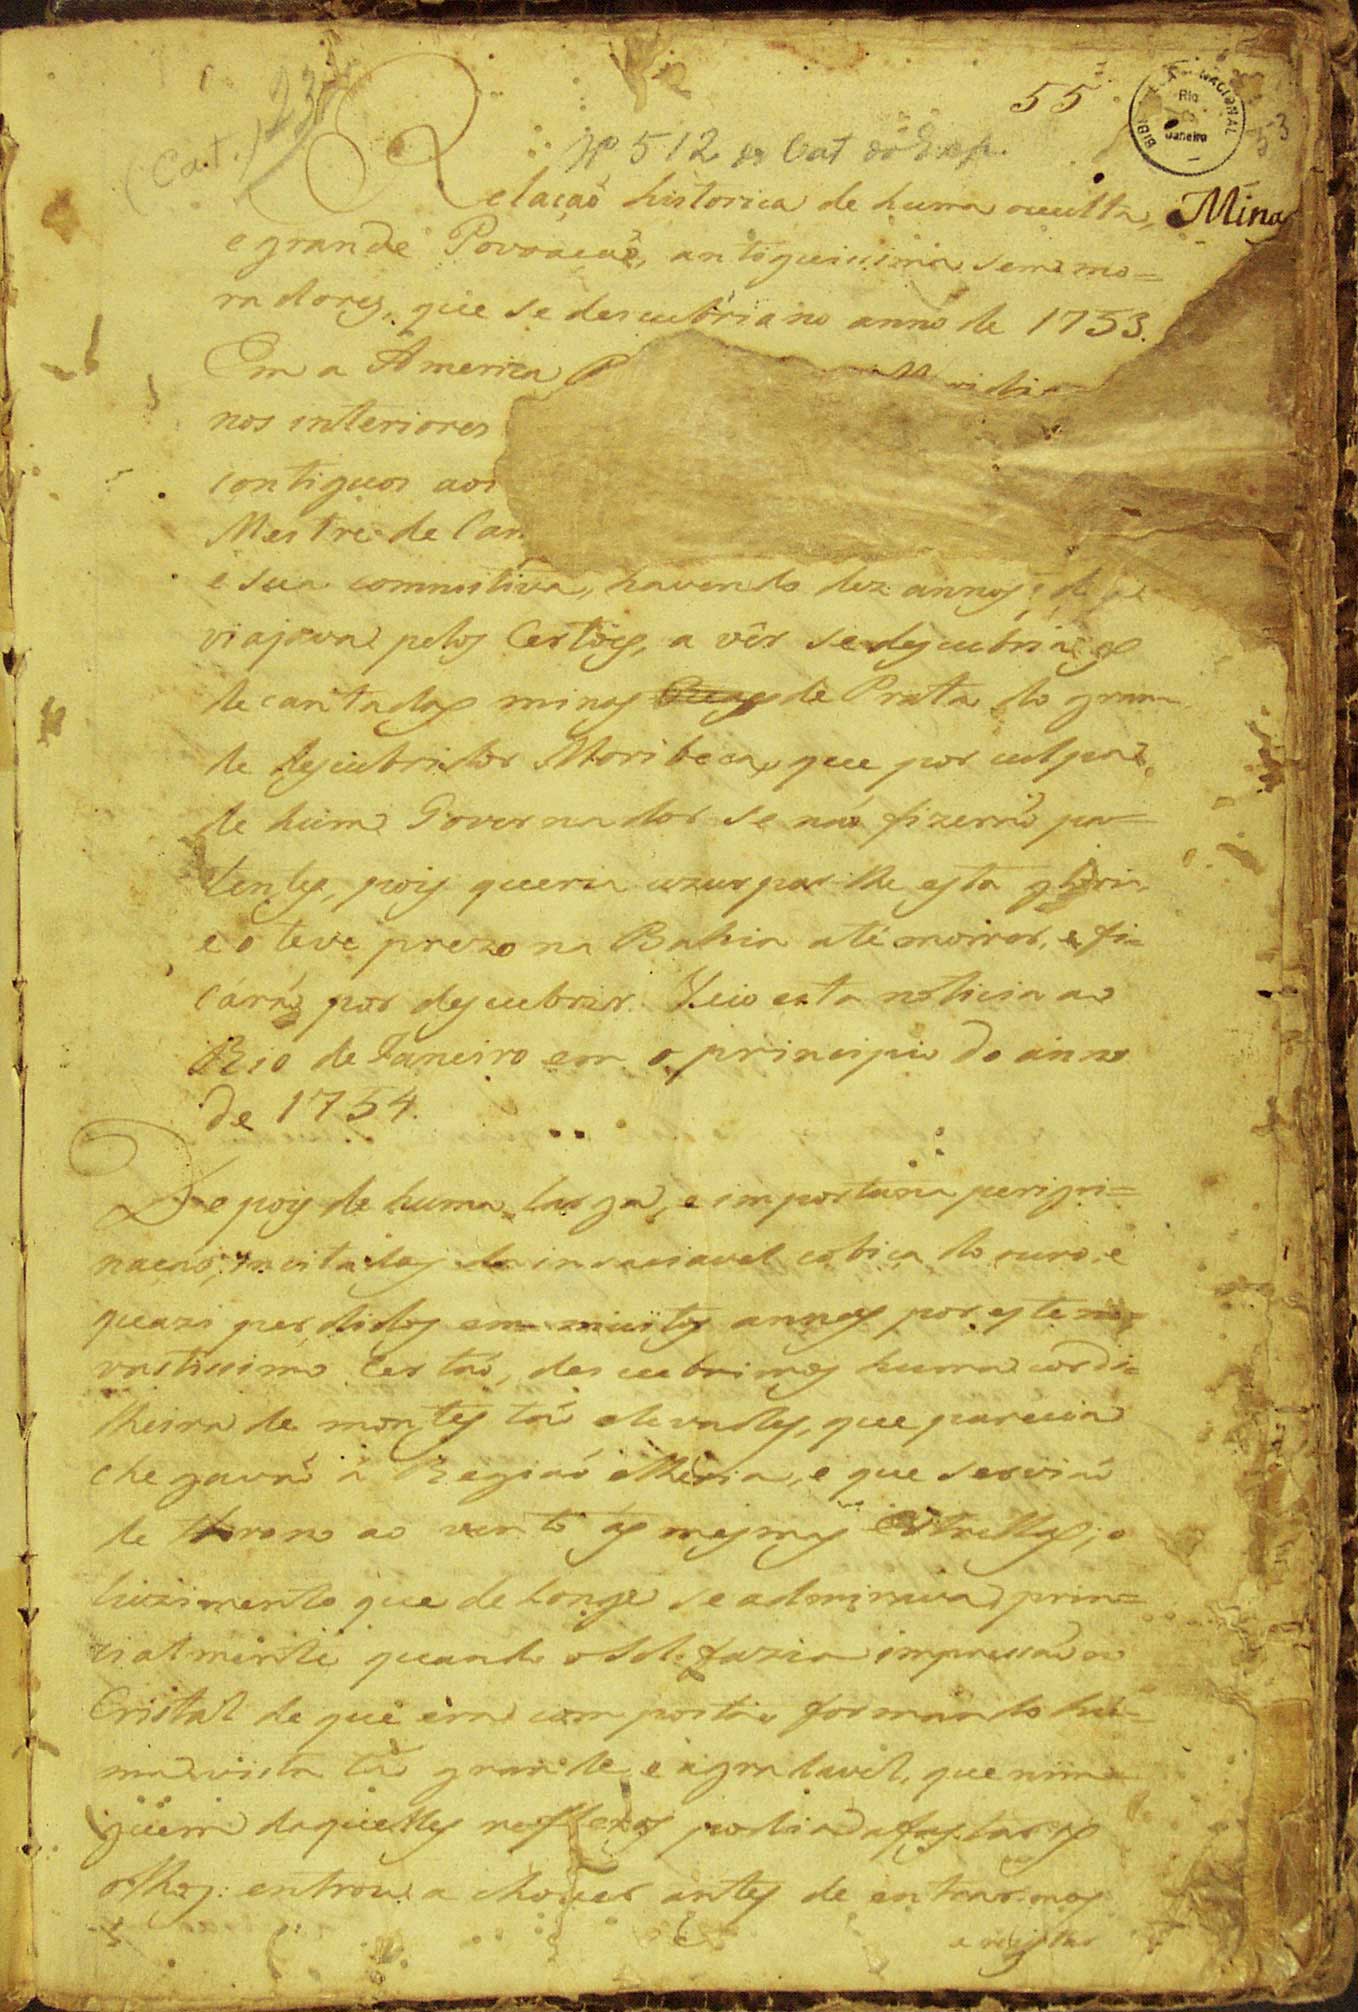 55
BIBLIOTECA NACIONAL
Rio
Janeiro
53
(Cat.) 23
Nº 512 do Cat da Exp.
Relação historica de huma occulta, Minas
e grande Povoação, antiguissima sem mo=
radores, que se descubriu no anno de 1753.
Em a America
nos interiores
contiguos aos
Mestre de Can
e sua commitiva, havendo dez annos, q
viajava pelos Certões, a vêr se descubria os
decantadas minas de Prata do gran
de descubridor Moribeca, que por culpa
de hum Governador se não fizerão pa=
tentes, pois queria uzurparlhe esta gloria
e o teve prezo na Bahia até morrer, e fi=
cárão por descubrir. Veio esta noticia ao
Rio de Janeiro em o principio do anno
de 1754.
Depois de huma larga, e importuna perigri=
nação, incitados da insaciavel cobiça do ouro, e
quazi perdidos em muitos annos por este
vastissimo Certão, descubrimos huma cordi=
lheira de montes tão elevados, que parecia
chegavão á Região etheria, e que servião
de throno ao vento ás mesmas Estrellas; o
luzimento que de longe se admirava, prin=
cialmente quando o Sol fazia impressão ao
Cristal de que era composta formando hu=
ma vista tão grande e agradavel, que nin=
guem daquelles reflexos podia afastar os
olhos: entrou a chover antes de entrarmos
a registar